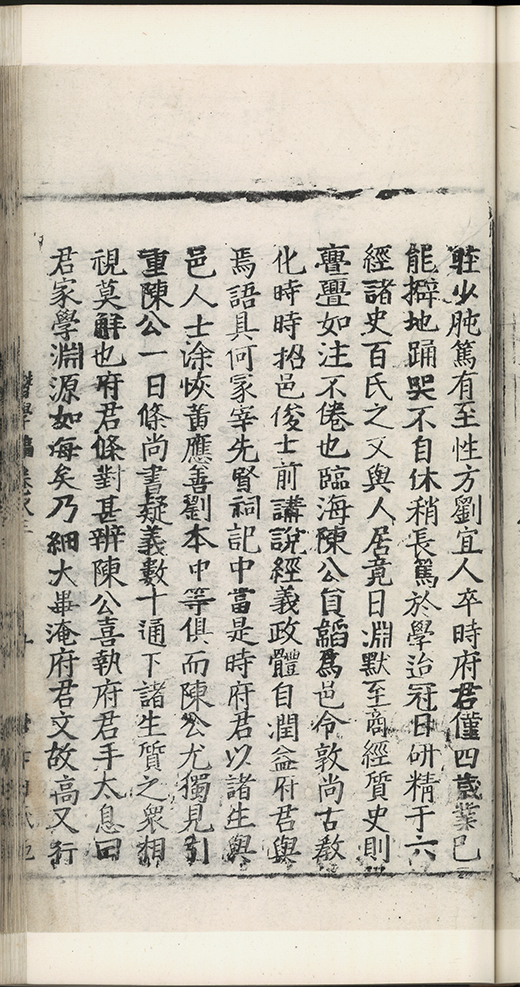 駐少肫篤有至性方劉宜人卒時府君僅四歲業已
能擗地踊哭不自休稍長篤於學迨冠日研精于六
經諸史百氏之文與人居竟日淵默至商經質史則
亹亹如注不倦也臨海陳公員韜為邑令敦尚古教
化時時招邑俊士前講說經義政體自潤益府君與
焉語具何冡宰先賢祠記中當是時府君以諸生與
邑人士涂恢黃應善劉本中等俱而陳公尤獨見引
重陳公一日條尚書疑義數十通下諸生質之眾相
視莫解也府君條對甚辨陳公喜執府君手太息曰
君家學淵源如海矣乃細大畢淹府君文故高又行